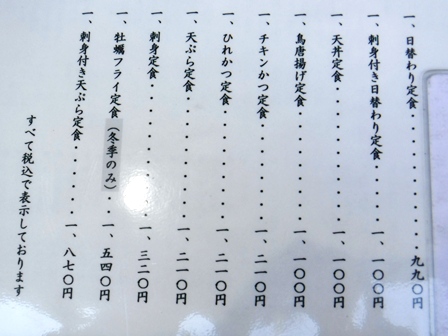 一、日替わり定食・・・・・・・・・・九九〇円
一、刺身付き日替わり定食・・・・・一、一〇〇円
一、天丼定食・・・・・・・・・・・一、一〇〇円
一、鳥唐揚げ定食・・・・・・・・・一、一〇〇円
一、チキンかつ定食・・・・・・・・一、二一〇円
一、ひれかつ定食・・・・・・・・・一、二一〇円
一、天ぷら定食・・・・・・・・・・一、二一〇円
一、刺身定食・・・・・・・・・・・一、三二〇円
一、牡蠣フライ定食（冬季のみ）・・一、五四〇円
一、刺身付き天ぷら定食・・・・・・一、八七〇円
すべて税込で表示しております